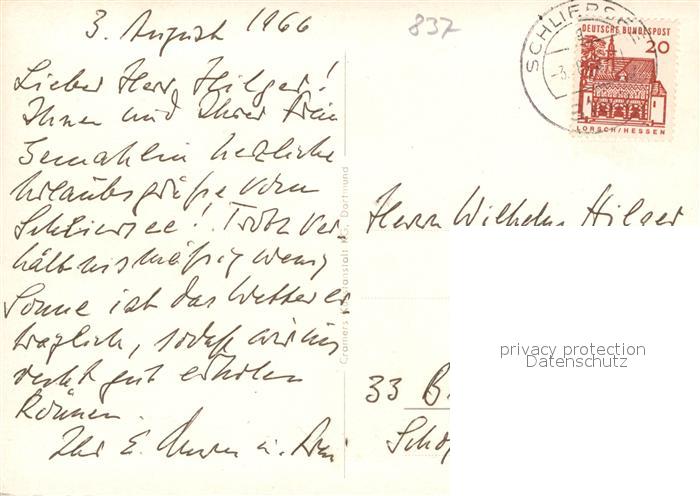 3. August 1966
837
Lieber Herr Hilger!
Ihnen und Ihrer Frau
Gemahlin herzliche
Urlaubsgrüße vom
Schliersee! Trotz ver
hältnismäßig wenig
Sonne ist das Wetter er
träglich, sodaß wir uns
recht gut erholen
können.
Ihr E.
Cramers Kunstanstalt KG, Dortmund
SCHLIERSEE
-3.
DEUTSCHE BUNDESPOST
20
LORSCH/HESSEN
Herrn Wilhelm Hilger
privacy protection
Datenschutz
33 B